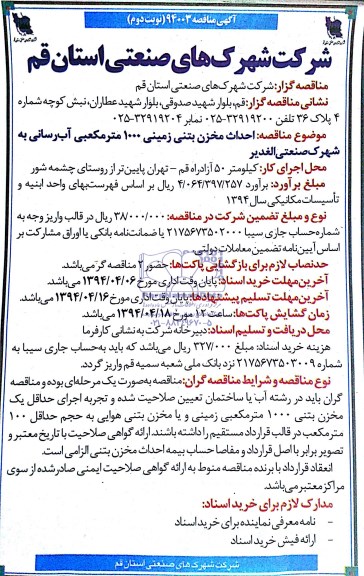 آگهی مناقصه ۹۴۰۰۳ (نوبت دوم)
شرکت شهرک‌های صنعتی استان قم
مناقصه گزار: شرکت شهرک‌های صنعتی استان قم
نشانی مناقصه گزار: قم، بلوار شهید صدوقی، بلوار شهید عطاران، نبش کوچه شماره
۴ پلاک ۳۶ تلفن ۳۲۹۱۹۲۰۰-۰۲۵ نمابر ۳۲۹۱۹۲۰۴-۰۲۵
موضوع مناقصه: احداث مخزن بتنی زمینی ۱۰۰۰ مترمکعبی آب‌رسانی به
شهرک صنعتی الغدیر
محل اجرای کار: کیلومتر ۵۰ آزادراه قم - تهران پایین‌تر از روستای چشمه شور
مبلغ برآورد: برآورد ۴/۰۶۴/۳۹۷/۲۵۷ ریال بر اساس فهرست‌بهای واحد ابنیه و
تأسیسات مکانیکی سال ۱۳۹۴
نوع و مبلغ تضمین شرکت در مناقصه: ۳۸/۰۰۰/۰۰۰ ریال در قالب واریز وجه به
شماره‌حساب جاری سیبا ۲۱۷۵۶۷۳۵۰۲۰۰۰ یا ضمانت‌نامه بانکی یا اوراق مشارکت بر
اساس آیین‌نامه تضمین معاملات دولتی
حدنصاب لازم برای بازگشایی پاکت‌ها: حضور ۲ مناقصه گر می‌باشد.
آخرین مهلت خرید اسناد: پایان وقت اداری مورخ ۱۳۹۴/۰۴/۰۶ می‌باشد.
آخرین مهلت تسلیم پیشنهادها: پایان وقت اداری مورخ ۱۳۹۴/۰۴/۱۶ می‌باشد.
زمان گشایش پاکت‌ها: ساعت ۱۲ مورخ ۱۳۹۴/۰۴/۱۸ می‌باشد.
محل دریافت و تسلیم اسناد: دبیرخانه شرکت به نشانی کارفرما
هزینه خرید اسناد: مبلغ ۳۲۷/۰۰۰ ریال می‌باشد که باید به‌حساب جاری سیبا به
شماره ۲۱۷۵۶۷۳۵۰۳۰۰۹ نزد بانک ملی شعبه سمیه قم واریز گردد.
نوع مناقصه و شرایط مناقصه گران: مناقصه به‌صورت یک مرحله‌ای بوده و مناقصه
گران باید در رشته آب یا ساختمان تعیین صلاحیت شده و تجربه اجرای حداقل یک
مخزن بتنی ۱۰۰۰ مترمکعبی زمینی و یا مخزن بتنی هوایی به حجم حداقل ۱۰۰
مترمکعب در قالب قرارداد مستقیم را داشته باشند. ارائه گواهی صلاحیت با تاریخ معتبر و
تصویر برابر با اصل قرارداد و مفاصا حساب بیمه احداث مخزن بتنی الزامی است.
انعقاد قرارداد با برنده مناقصه منوط به ارائه گواهی صلاحیت ایمنی صادر شده از سوی
مراکز معتبر می‌باشد.
مدارک لازم برای خرید اسناد:
- نامه معرفی نماینده برای خرید اسناد
- ارائه فیش خرید اسناد
شرکت شهرک های صنعتی استان قم